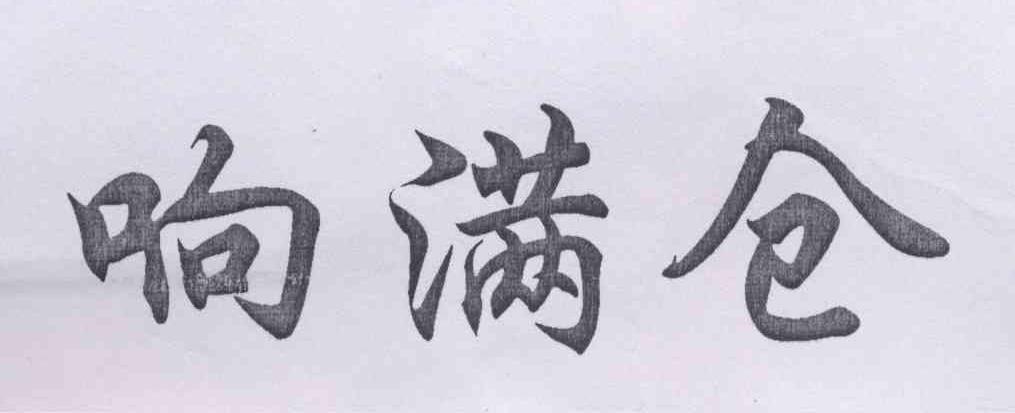 响满仓